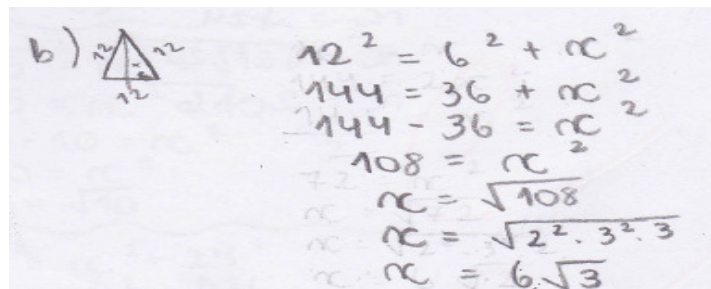 b) 12 12 12
12² = 6² + x²
144 = 36 + x²
144 - 36 = x²
108 = x²
x = √108
x = √2² · 3² · 3
x = 6√3